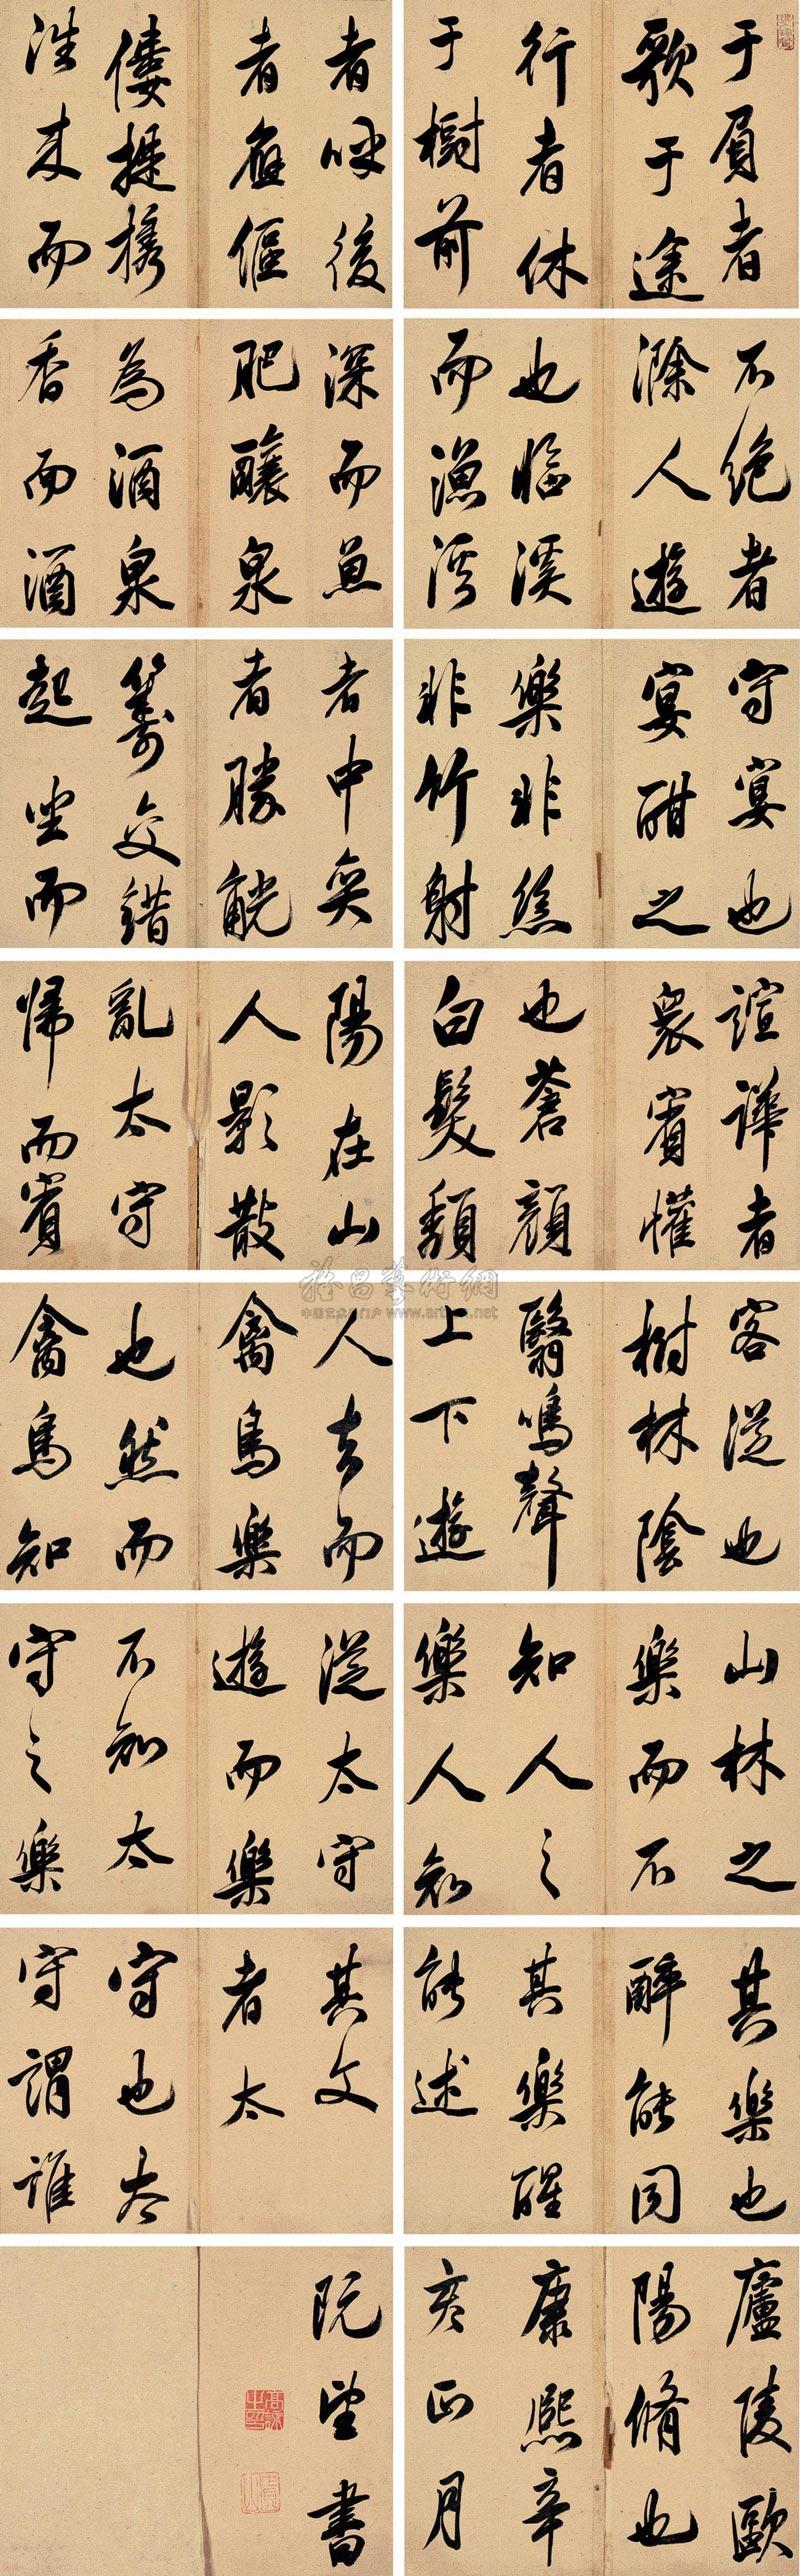 于肩者
歌于途
行者休
于樹前
者呼後
者應傴
僂提携
往来而
不絶者
滁人遊
也臨溪
而漁溪
深而魚
肥釀泉
為酒泉
香而酒
守宴也
宴酣之
樂非絲
非竹射
者中奕
者勝觥
籌交錯
起坐而
諠譁者
衆賓懽
也蒼顔
白髮頹
陽在山
人影散
亂太守
帰而賓
客従也
樹林陰
翳鳴聲
上下遊
人去而
禽鳥樂
也然而
禽鳥知
山林之
樂而不
知人之
樂人知
従太守
遊而樂
不知太
守之樂
其樂也
醉能同
其樂醒
能述
其文
者太
守也太
守謂誰
廬陵歐
陽脩也
康熙辛
亥正月
阮望書